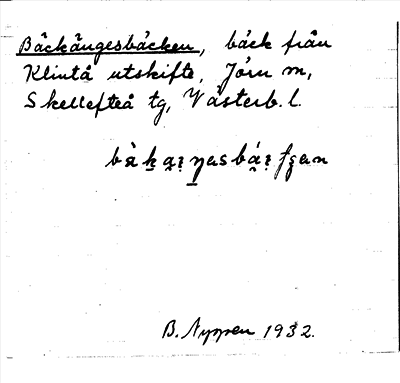 Bäckängesbäcken, bäck från
Klintå utskifte, Jörn sn,
Skellefteå tg, Västerb. l.
B. Nyman 1932.